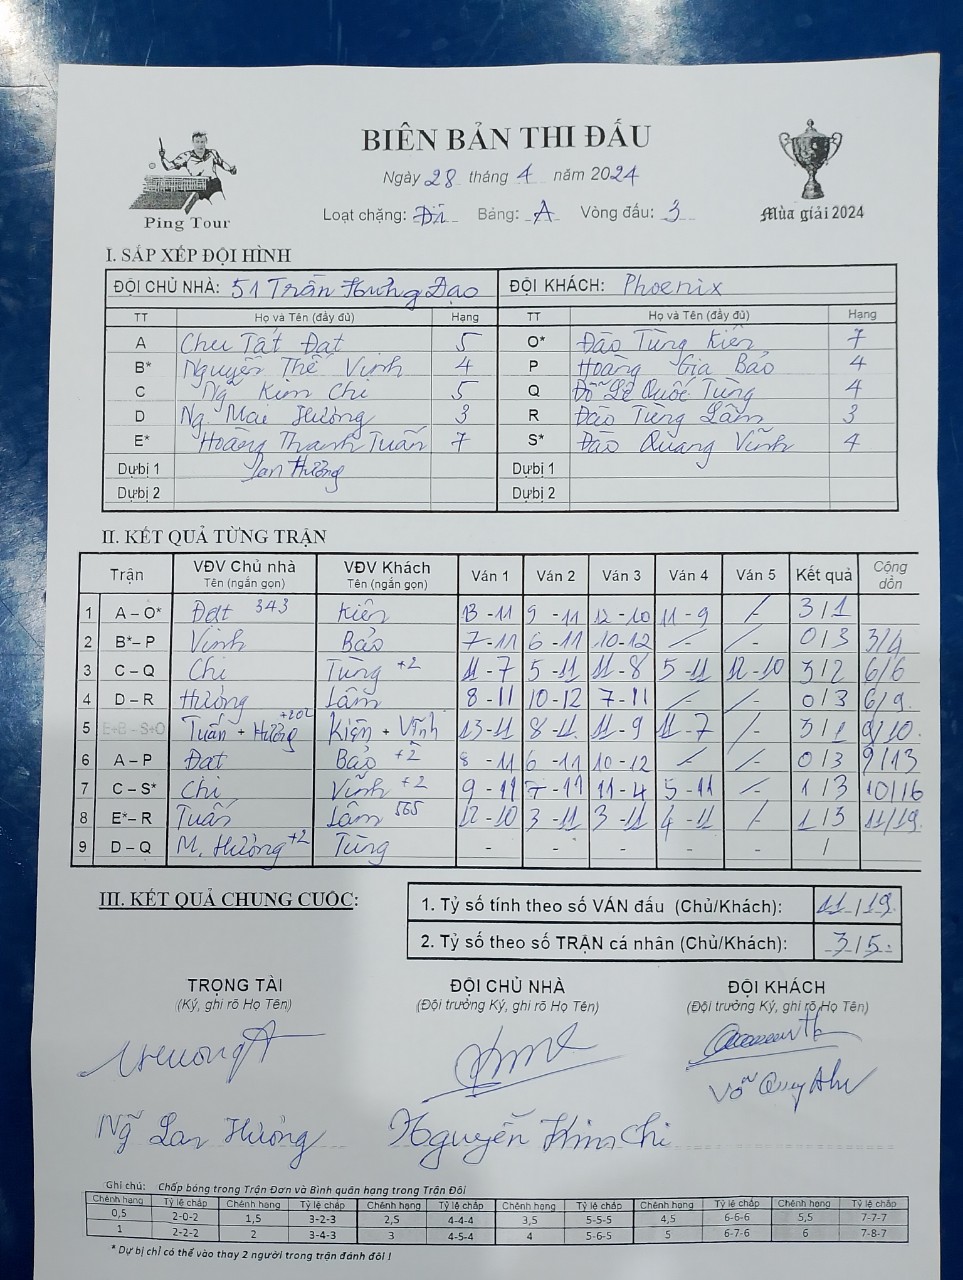 BIÊN BẢN THI ĐẤU
Ngày 28 tháng 4 năm 2024
Ping Tour
Loạt chặng: Đi Bảng: A Vòng đấu: 3
Mùa giải 2024
I. SẮP XẾP ĐỘI HÌNH
ĐỘI CHỦ NHÀ: 51 Trần Hưng Đạo ĐỘI KHÁCH: Phoenix
TT Họ và Tên (đầy đủ) Hạng TT Họ và Tên (đầy đủ) Hạng
A Chu Tất Đạt 5 O* Đào Tùng Kiên 7
B* Nguyễn Thế Vinh 4 P Hoàng Gia Bảo 4
C Ng Kim Chi 5 Q Đỗ Lê Quốc Tùng 4
D Ng Mai Hương 3 R Đào Tùng Lâm 3
E* Hoàng Thanh Tuấn 7 S* Đào Quang Vinh 4
Dự bị 1 Lan Hương Dự bị 1
Dự bị 2 Dự bị 2
II. KẾT QUẢ TỪNG TRẬN
Trận VĐV Chủ nhà Tên (ngắn gọn) VĐV Khách Tên (ngắn gọn) Ván 1 Ván 2 Ván 3 Ván 4 Ván 5 Kết quả Cộng dồn
1 A – O* Đạt 343 Kiên 13 - 11 9 - 11 12 - 10 11 - 9 / 3 / 1
2 B* – P Vinh Bảo 7 - 11 6 - 11 10 - 12 - - 0 / 3 3/4
3 C – Q Chi Tùng +2 11 - 7 5 - 11 11 - 8 5 - 11 12 - 10 3 / 2 6/6
4 D – R Hương Lâm 8 - 11 10 - 12 7 - 11 - - 0 / 3 6/9
5 E+B – S+O Tuấn + Hương +202 Kiên + Vinh 13 - 11 8 - 11 11 - 9 11 - 7 / 3 / 1 9/10
6 A – P Đạt Bảo +2 8 - 11 6 - 11 10 - 12 - - 0 / 3 9/13
7 C – S* Chi Vinh +2 9 - 11 7 - 11 11 - 4 5 - 11 - 1 / 3 10/16
8 E* – R Tuấn Lâm 565 12 - 10 3 - 11 3 - 11 4 - 11 / 1 / 3 11/19
9 D – Q M. Hương +2 Tùng - - - - - /
III. KẾT QUẢ CHUNG CUỘC:
1. Tỷ số tính theo số VÁN đấu (Chủ/Khách): 11 / 19
2. Tỷ số theo số TRẬN cá nhân (Chủ/Khách): 3 / 5
TRỌNG TÀI ĐỘI CHỦ NHÀ ĐỘI KHÁCH
(Ký, ghi rõ Họ Tên) (Đội trưởng Ký, ghi rõ Họ Tên) (Đội trưởng Ký, ghi rõ Họ Tên)
Ng Lan Hương Nguyễn Kim Chi
Ghi chú: Chấp bóng trong Trận Đơn và Bình quân hạng trong Trận Đôi
Chênh hạng Tỷ lệ chấp Chênh hạng Tỷ lệ chấp Chênh hạng Tỷ lệ chấp Chênh hạng Tỷ lệ chấp Chênh hạng Tỷ lệ chấp Chênh hạng Tỷ lệ chấp
0,5 2-0-2 1,5 3-2-3 2,5 4-4-4 3,5 5-5-5 4,5 6-6-6 5,5 7-7-7
1 2-2-2 2 3-4-3 3 4-5-4 4 5-6-5 5 6-7-6 6 7-8-7
* Dự bị chỉ có thể vào thay 2 người trong trận đánh đôi !